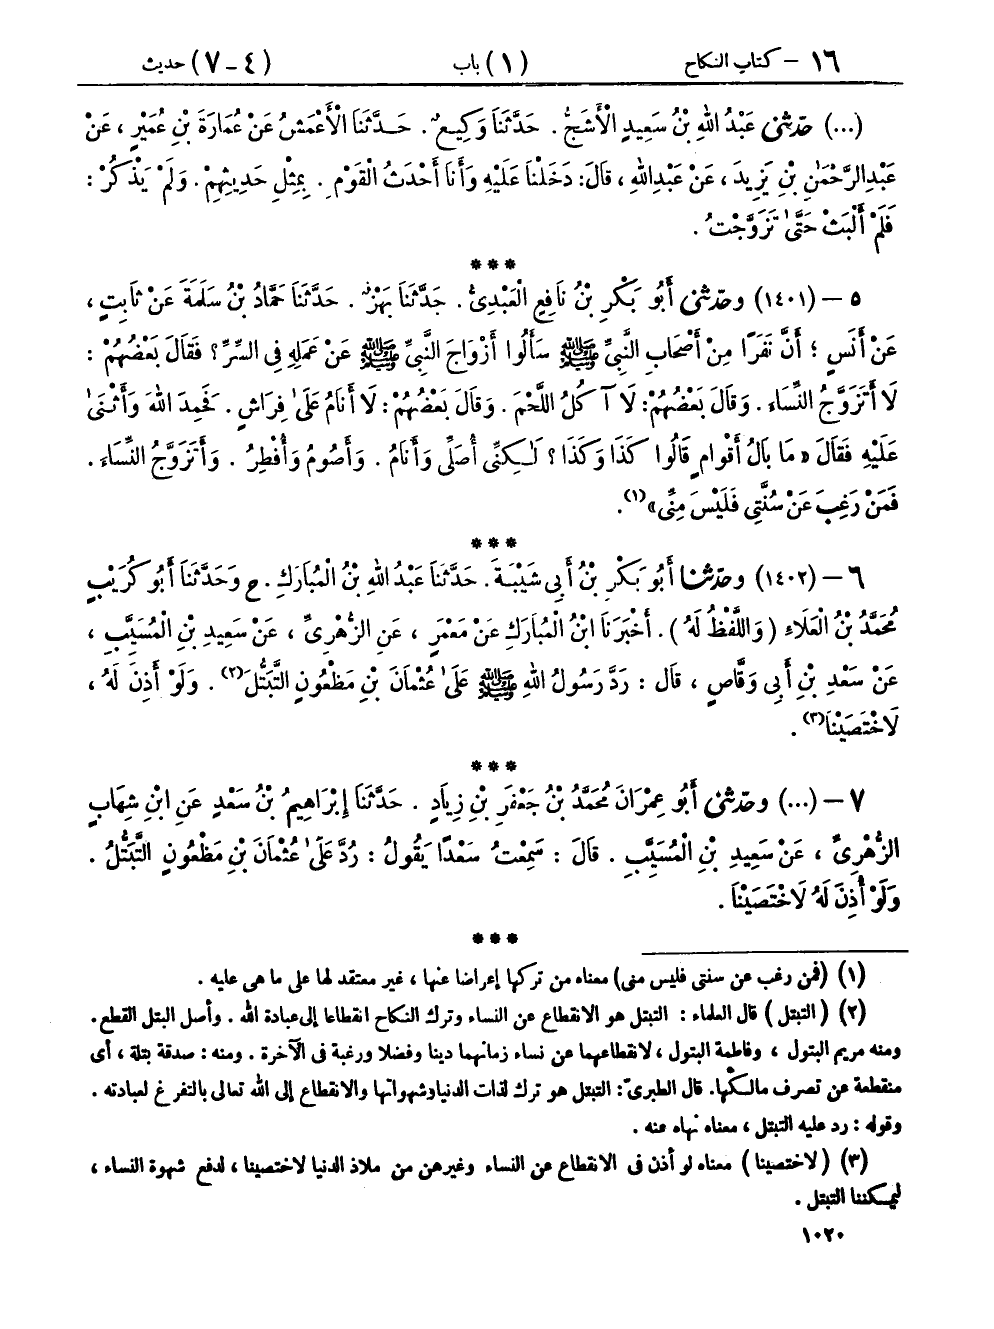 ١٦ – كتاب النكاح (١) باب (٤ – ٧) حديث
(...) حدّثنى عَبْدُ اللهِ بْنُ سَعِيدٍ الْأَشَجُّ . حَدَّثَنَا وَكِيعٌ . حَدَّثَنَا الْأَعْمَشُ عَنْ عُمَارَةَ بْنِ عُمَيْرٍ ، عَنْ
عَبْدِ الرَّحْمَٰنِ بْنِ يَزِيدَ ، عَنْ عَبْدِ اللهِ ، قَالَ : دَخَلْنَا عَلَيْهِ وَأَنَا أَحْدَثُ الْقَوْمِ . بِمِثْلِ حَدِيثِهِمْ . وَلَمْ يَذْكُرْ :
فَلَمْ أَلْبَثْ حَتَّىٰ تَزَوَّجْتُ .
***
٥ – (١٤٠١) وحدّثنى أَبُو بَكْرِ بْنُ نَافِعٍ الْعَبْدِىُّ . حَدَّثَنَا بَهْزٌ . حَدَّثَنَا حَمَّادُ بْنُ سَلَمَةَ عَنْ ثَابِتٍ ،
عَنْ أَنَسٍ ؛ أَنَّ نَفَرًا مِنْ أَصْحَابِ النَّبِىِّ ﷺ سَأَلُوا أَزْوَاجَ النَّبِىِّ ﷺ عَنْ عَمَلِهِ فِى السِّرِّ ؟ فَقَالَ بَعْضُهُمْ :
لَا أَتَزَوَّجُ النِّسَاءَ . وَقَالَ بَعْضُهُمْ : لَا آكُلُ اللَّحْمَ . وَقَالَ بَعْضُهُمْ : لَا أَنَامُ عَلَىٰ فِرَاشٍ . فَحَمِدَ اللهَ وَأَثْنَىٰ
عَلَيْهِ فَقَالَ « مَا بَالُ أَقْوَامٍ قَالُوا كَذَا وَكَذَا ؟ لَٰكِنِّى أُصَلِّى وَأَنَامُ . وَأَصُومُ وَأُفْطِرُ . وَأَتَزَوَّجُ النِّسَاءَ .
فَمَنْ رَغِبَ عَنْ سُنَّتِى فَلَيْسَ مِنِّى » (١) .
***
٦ – (١٤٠٢) وحدّثنا أَبُو بَكْرِ بْنُ أَبِى شَيْبَةَ . حَدَّثَنَا عَبْدُ اللهِ بْنُ الْمُبَارَكِ . ح وَحَدَّثَنَا أَبُو كُرَيْبٍ
مُحَمَّدُ بْنُ الْعَلَاءِ ( وَاللَّفْظُ لَهُ ) . أَخْبَرَنَا ابْنُ الْمُبَارَكِ عَنْ مَعْمَرٍ ، عَنِ الزُّهْرِىِّ ، عَنْ سَعِيدِ بْنِ الْمُسَيَّبِ ،
عَنْ سَعْدِ بْنِ أَبِى وَقَّاصٍ ، قَالَ : رَدَّ رَسُولُ اللهِ ﷺ عَلَىٰ عُثْمَانَ بْنِ مَظْعُونٍ التَّبَتُّلَ (٢) . وَلَوْ أَذِنَ لَهُ ،
لَاخْتَصَيْنَا (٣) .
***
٧ – (...) وحدّثنى أَبُو عِمْرَانَ مُحَمَّدُ بْنُ جَعْفَرِ بْنِ زِيَادٍ . حَدَّثَنَا إِبْرَاهِيمُ بْنُ سَعْدٍ عَنِ ابْنِ شِهَابٍ
الزُّهْرِىِّ ، عَنْ سَعِيدِ بْنِ الْمُسَيَّبِ . قَالَ : سَمِعْتُ سَعْدًا يَقُولُ : رُدَّ عَلَىٰ عُثْمَانَ بْنِ مَظْعُونٍ التَّبَتُّلُ .
وَلَوْ أُذِنَ لَهُ لَاخْتَصَيْنَا .
***
(١) (فمن رغب عن سنتى فليس منى) معناه من تركها إعراضا عنها ، غير معتقد لها على ما هى عليه .
(٢) ( التبتل ) قال العلماء : التبتل هو الانقطاع عن النساء وترك النكاح انقطاعا إلى عبادة الله . وأصل البتل القطع .
ومنه مريم البتول ، وفاطمة البتول ، لانقطاعهما عن نساء زمانهما دينا وفضلا ورغبة فى الآخرة . ومنه : صدقة بتلة ، أى
منقطعة عن تصرف مالكها. قال الطبرىّ : التبتل هو ترك لذات الدنيا وشهواتها والانقطاع إلى الله تعالى بالتفرغ لعبادته .
وقوله : رد عليه التبتل ، معناه نهاه عنه .
(٣) ( لاختصينا ) معناه لو أذن فى الانقطاع عن النساء وغيرهن من ملاذ الدنيا لاختصينا ، لدفع شهوة النساء ،
ليمكننا التبتل .
١٠٢٠